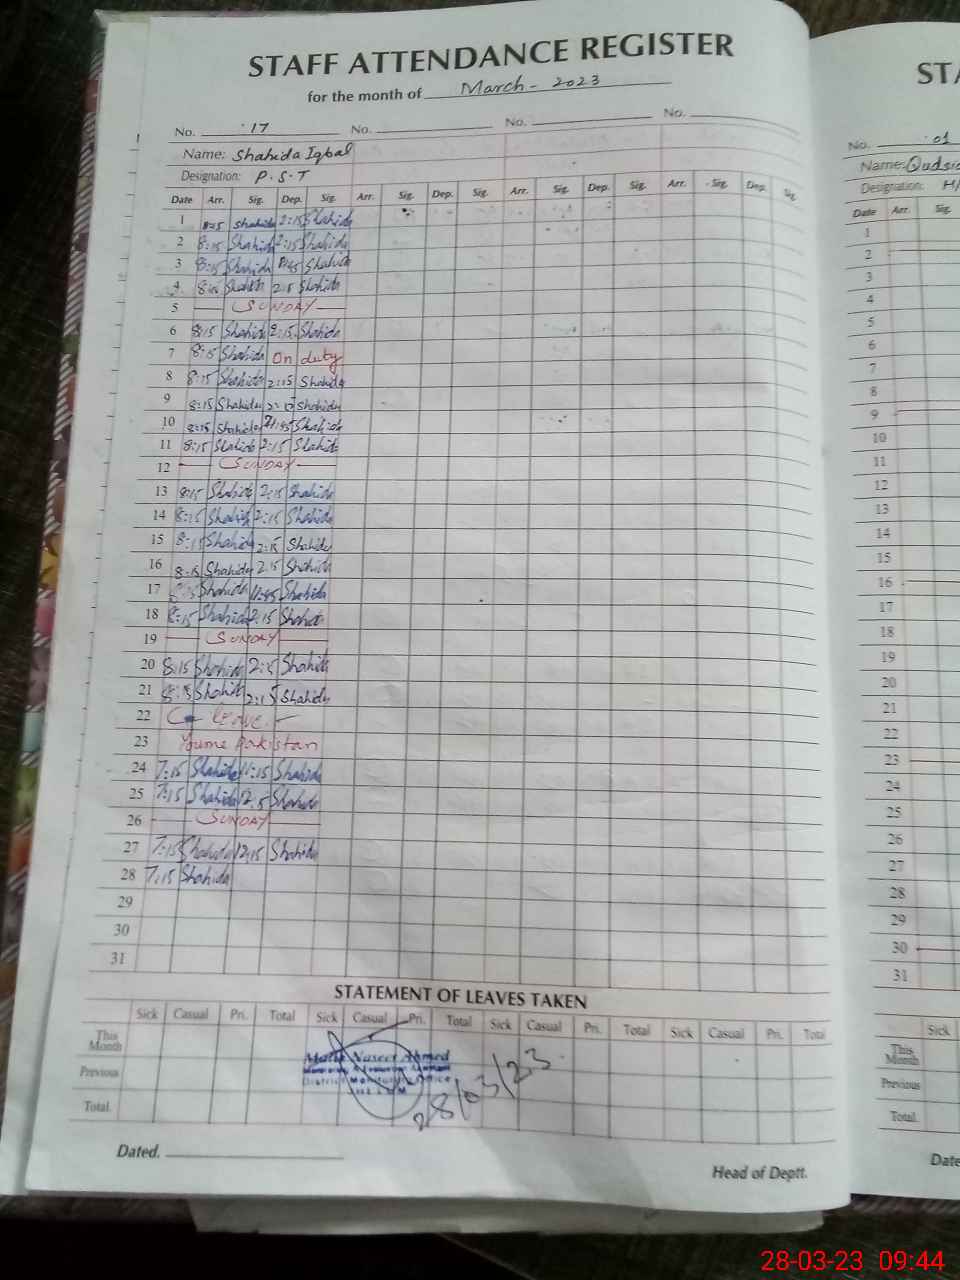 STAFF ATTENDANCE REGISTER
for the month of March - 2023
No. 17 No. No. No.
Name: Shahida Iqbal
Designation: P.S.T
Date Arr. Sig. Dep. Sig. Arr. Sig. Dep. Sig. Arr. Sig. Dep. Sig. Arr. Sig. Dep. Sig.
1 8:15 Shahida 2:15 Shahida
2 8:15 Shahida 2:15 Shahida
3 8:15 Shahida Shahida
4 Shahida 2:15 Shahida
5 SUNDAY
6 8:15 Shahida 2:15 Shahida
7 8:15 Shahida On duty
8 8:15 Shahida 2:15 Shahida
9 8:15 Shahida 2:15 Shahida
10 8:15 Shahida Shahida
11 8:15 Shahida 2:15 Shahida
12 SUNDAY
13 8:15 Shahida 2:15 Shahida
14 8:15 Shahida 2:15 Shahida
15 8:15 Shahida 2:15 Shahida
16 8:15 Shahida 2:15 Shahida
17 8:15 Shahida 11:45 Shahida
18 8:15 Shahida 2:15 Shahida
19 SUNDAY
20 8:15 Shahida 2:15 Shahida
21 8:15 Shahida 2:15 Shahida
22 C - leave -
23 Youme Pakistan
24 7:15 Shahida 11:15 Shahida
25 7:15 Shahida Shahida
26 SUNDAY
27 7:15 Shahida 12:15 Shahida
28 7:15 Shahida
29
30
31
STATEMENT OF LEAVES TAKEN
Sick Casual Pri. Total Sick Casual Pri. Total Sick Casual Pri. Total Sick Casual Pri. Total
This Month
Previous
Total.
Malik Naseer Ahmed
District Monitoring Office
28/03/23
Dated.
Head of Deptt.
STA
No. 01
Name: Qudsia
Designation: H/
Date Arr. Sig.
1
2
3
4
5
6
7
8
9
10
11
12
13
14
15
16
17
18
19
20
21
22
23
24
25
26
27
28
29
30
31
Sick
This Month
Previous
Total.
Date
28-03-23 09:44